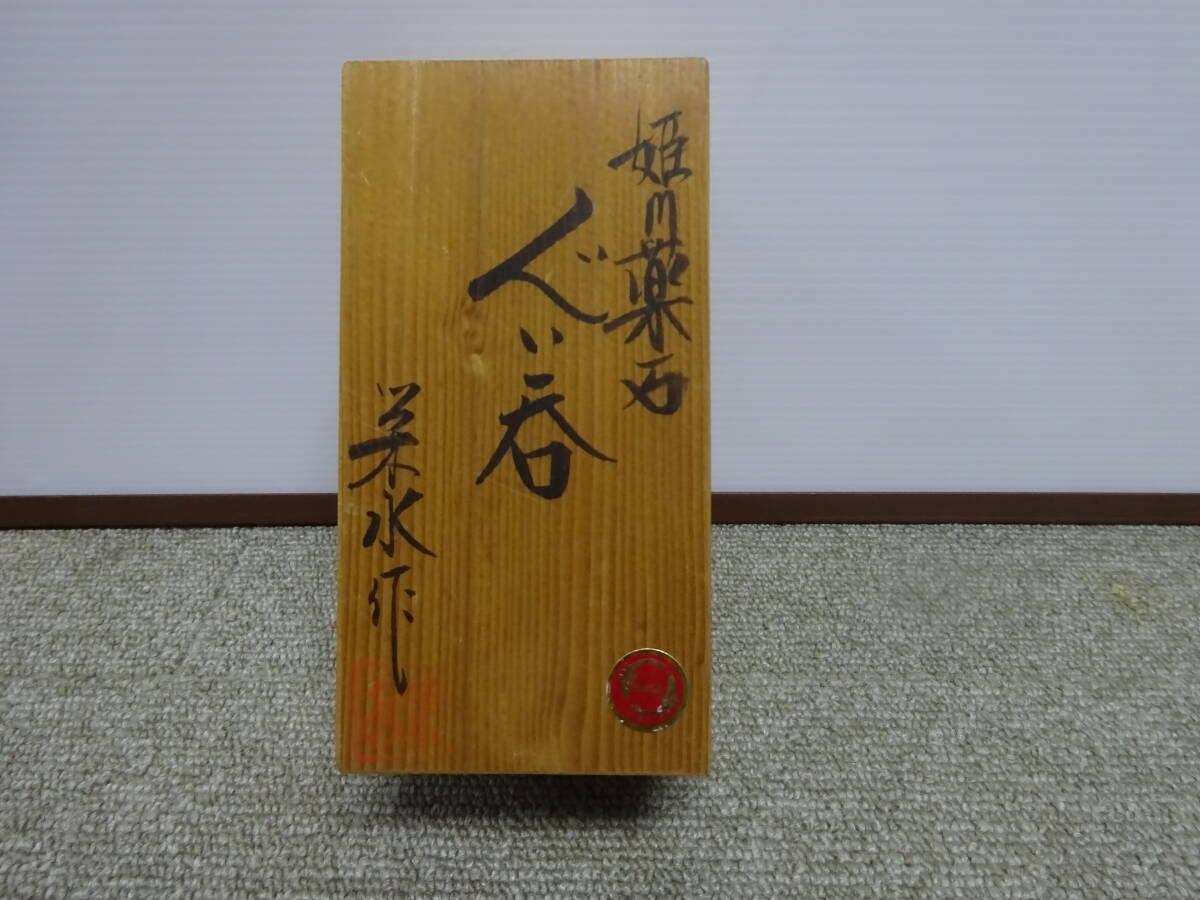 姫川薬石
ぐい呑
栄水作